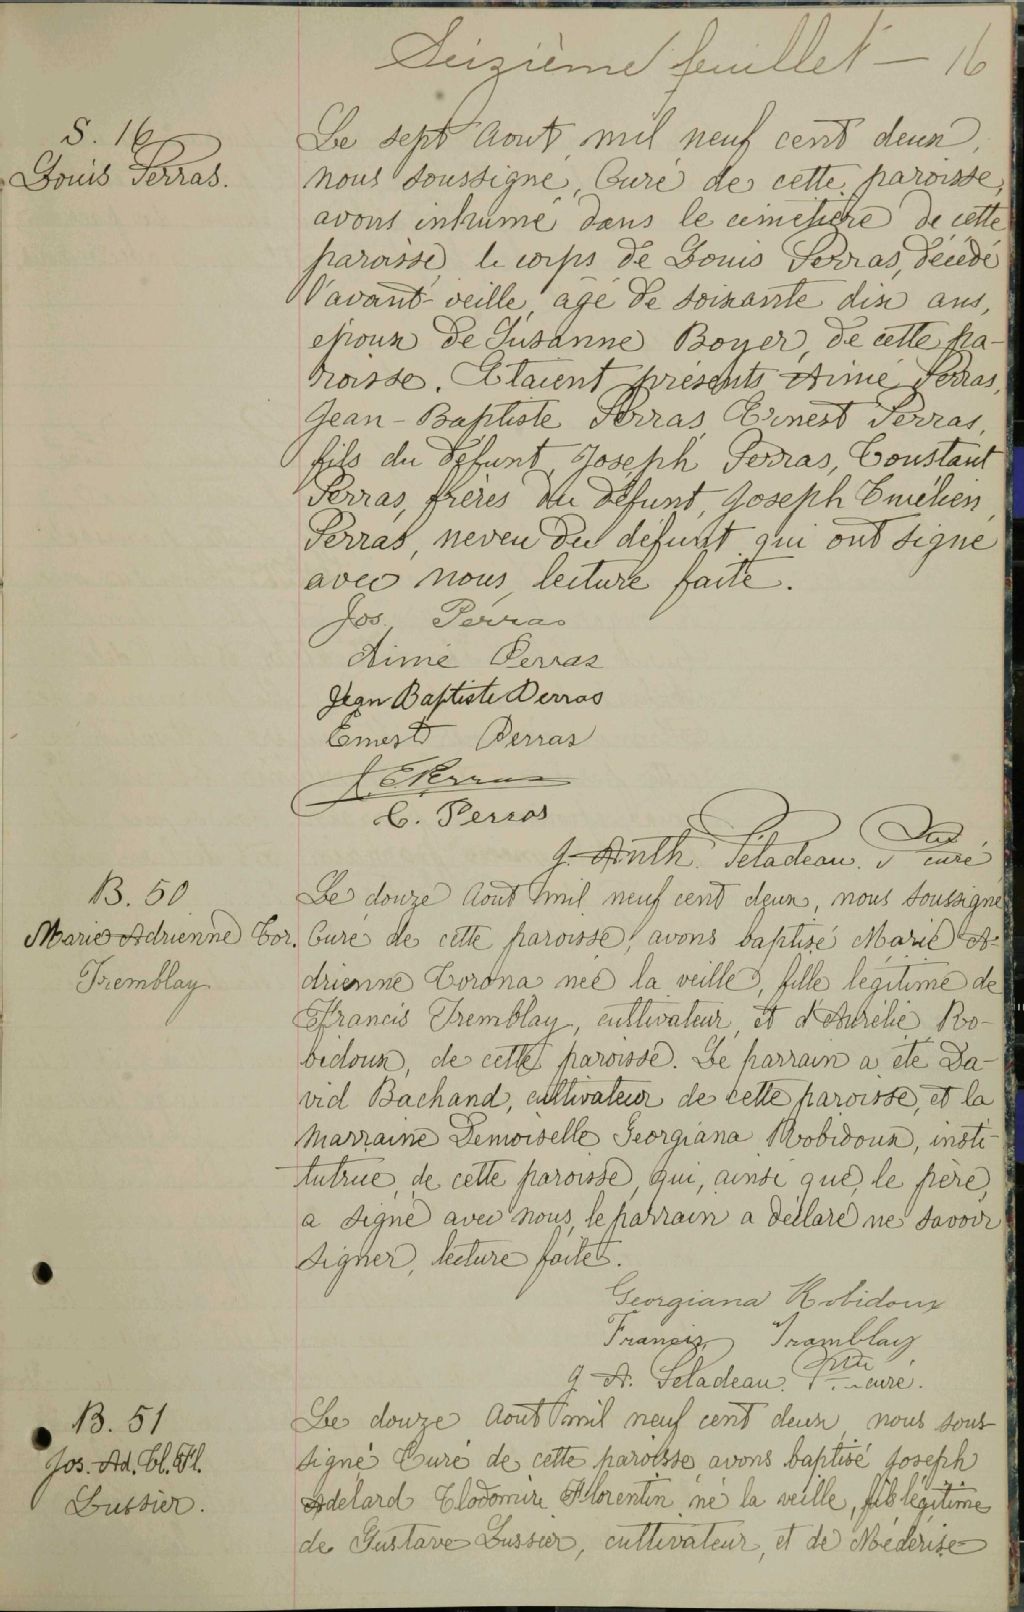 Seizième feuillet — 16
S. 16
Louis Perras.
Le sept Aout mil neuf cent deux,
nous soussigné, Curé de cette paroisse,
avons inhumé dans le cimetière de cette
paroisse le corps de Louis Perras, décédé
l'avant-veille, agé de soixante dix ans,
époux de Susanne Boyer, de cette pa-
roisse. Etaient présents Aimé Perras,
Jean-Baptiste Perras, Ernest Perras,
fils du défunt, Joseph Perras, Constant
Perras, frères du défunt, Joseph Emélien
Perras, neveu du défunt qui ont signé
avec nous, lecture faite.
Jos. Perras
Aimé Perras
Jean Baptiste Perras
Ernest Perras
J. E Perras
C. Perras
J. Anth. Péladeau. Ptre curé
B. 50
Marie Adrienne Cor.
Tremblay
Le douze Aout mil neuf cent deux, nous soussigné
Curé de cette paroisse, avons baptisé Marie A-
drienne Corona née la veille, fille légitime de
Francis Tremblay, cultivateur, et d'Aurélie Ro-
bidoux, de cette paroisse. Le parrain a été Da-
vid Bachand, cultivateur de cette paroisse, et la
marraine Demoiselle Georgiana Robidoux, insti-
tutrice, de cette paroisse, qui, ainsi que le père,
a signé avec nous, le parrain a déclaré ne savoir
signer, lecture faite.
Georgiana Robidoux
Francis Tramblay
J. A. Péladeau. Ptre curé.
B. 51
Jos. Ad. Cl. Fl.
Lussier.
Le douze Aout mil neuf cent deux, nous sous-
signé Curé de cette paroisse avons baptisé Joseph
Adélard Clodomire Florentin né la veille, fils légitime
de Gustave Lussier, cultivateur, et de Médérise